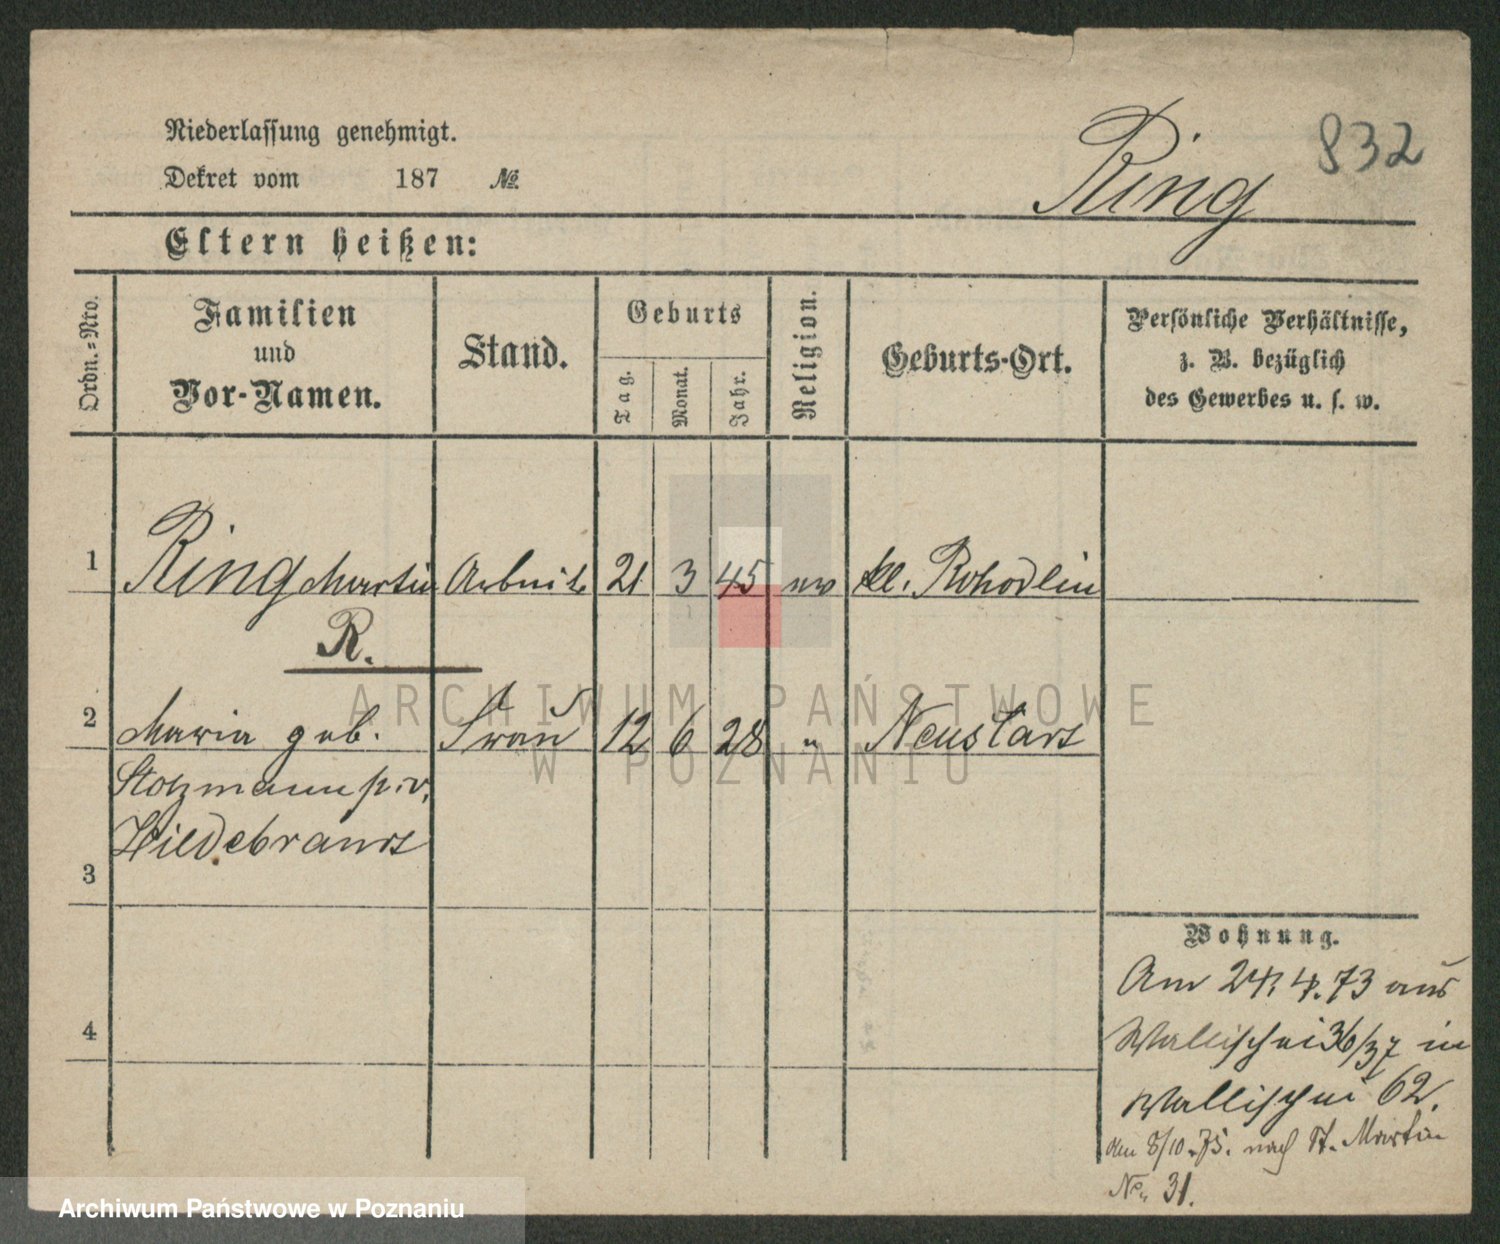 832
Ring
Niederlassung genehmigt.
Dekret vom 187 №
Eltern heißen:
Ordn.-Nro.
Familien
und
Vor-Namen.
Stand.
Geburts
Tag.
Monat.
Jahr.
Religion.
Geburts-Ort.
Persönliche Verhältnisse,
z. B. bezüglich
des Gewerbes u. s. w.
1 Ring Martin Arbeit 21 3 45 ev kl.
R.
2 Maria geb. Frau 12 6 28 " Neustadt
Stolzmann p. v.
Hildebrandt
3
4
Wohnung.
Am 24. 4. 73 aus
Wallischei 36/37 in
Wallischei 62.
den 8/10. 75. nach St. Martin
No. 31.
ARCHIWUM PAŃSTWOWE
W POZNANIU
Archiwum Państwowe w Poznaniu